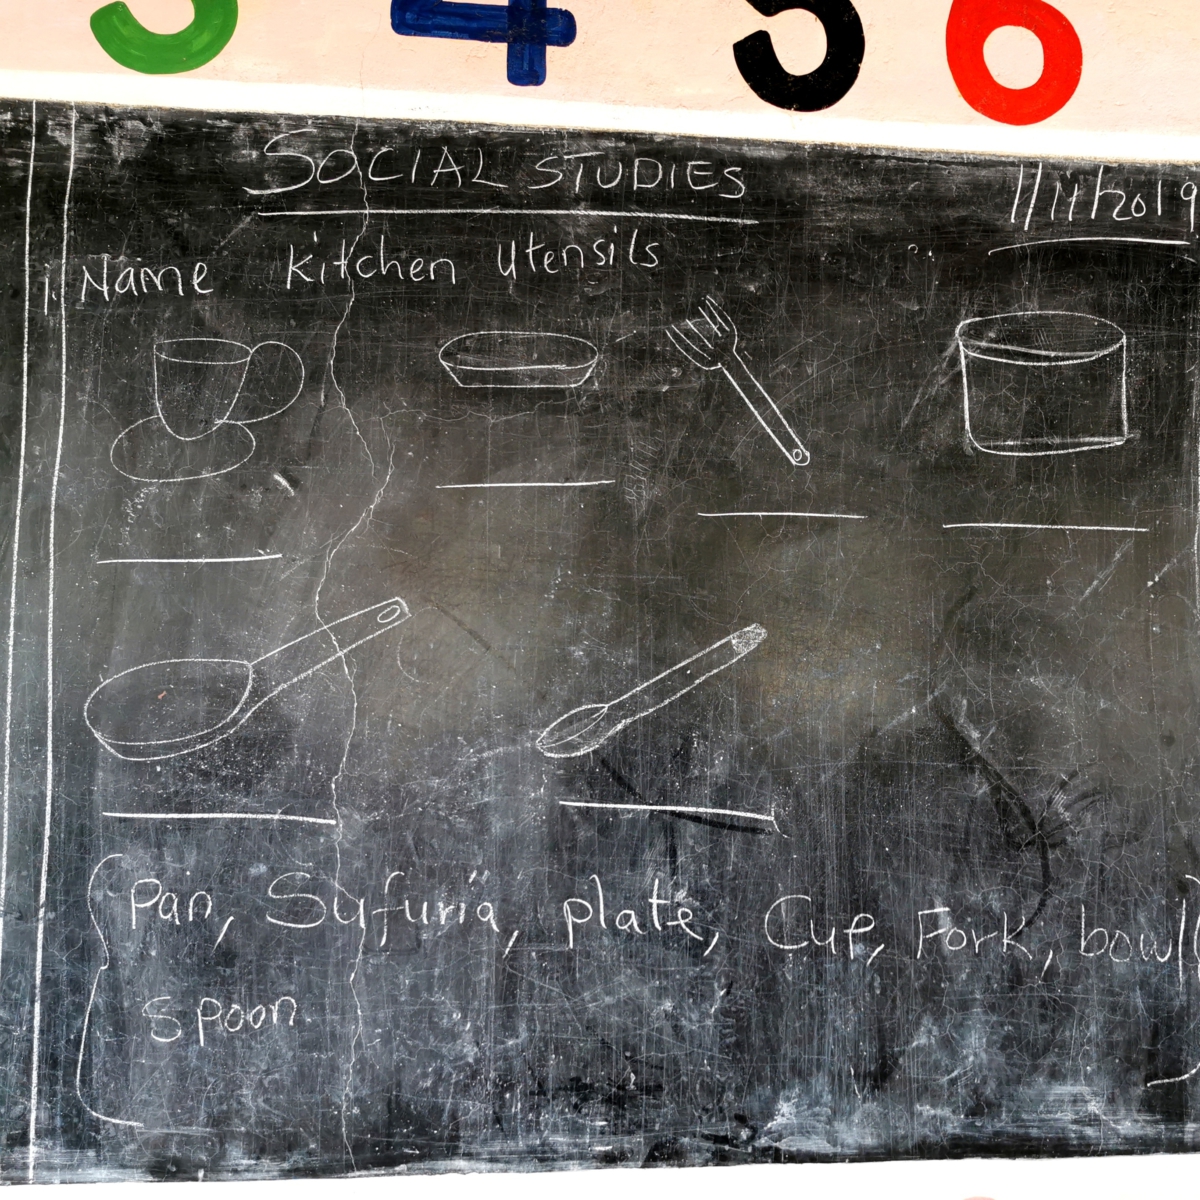 3 4 5 6
SOCIAL STUDIES
1/11/2019
1. Name kitchen utensils
Pan, Sufuria, plate, Cup, Fork, bowl
Spoon